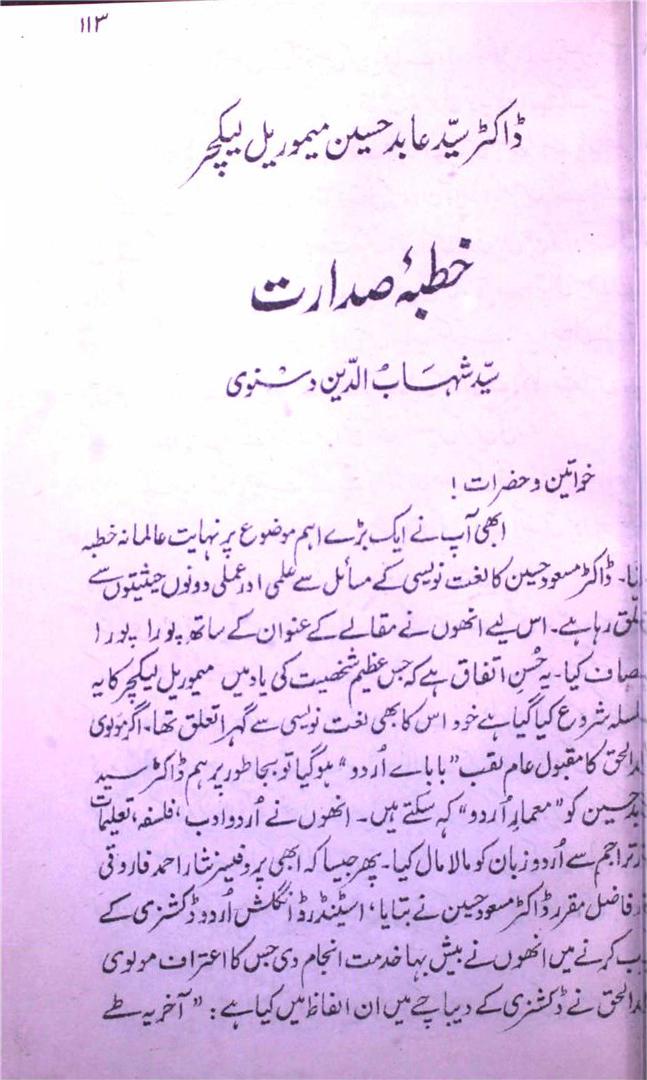 ۱۱۳
ڈاکٹر سیّد عابد حسین میموریل لیکچر
خطبۂ صدارت
سیّد شہاب الدّین دسنوی
خواتین و حضرات !
ابھی آپ نے ایک بڑے اہم موضوع پر نہایت عالمانہ خطبہ
سنا۔ ڈاکٹر مسعود حسین کا لغت نویسی کے مسائل سے علمی اور عملی دونوں حیثیتوں سے
تعلق رہا ہے۔ اس لیے انھوں نے مقالے کے عنوان کے ساتھ پورا پورا
انصاف کیا۔ یہ حُسنِ اتفاق ہے کہ جس عظیم شخصیت کی یاد میں میموریل لیکچر کا یہ
سلسلہ شروع کیا گیا ہے خود اس کا بھی لغت نویسی سے گہرا تعلق تھا۔ اگر مولوی
عبدالحق کا مقبول عام لقب "باباے اُردو" ہو گیا تو بجا طور پر ہم ڈاکٹر سید
عابد حسین کو "معمارِ اُردو" کہ سکتے ہیں۔ انھوں نے اُردو ادب، فلسفہ، تعلیمات
اور تراجم سے اُردو زبان کو مالا مال کیا۔ پھر جیسا کہ ابھی پروفیسر نثار احمد فاروقی
اور فاضل مقرر ڈاکٹر مسعود حسین نے بتایا، اسٹینڈرڈ انگلش اُردو ڈکشنری کے
کرنے میں انھوں نے بیش بہا خدمت انجام دی جس کا اعتراف مولوی
عبدالحق نے ڈکشنری کے دیباچے میں ان الفاظ میں کیا ہے : "آخر یہ طے